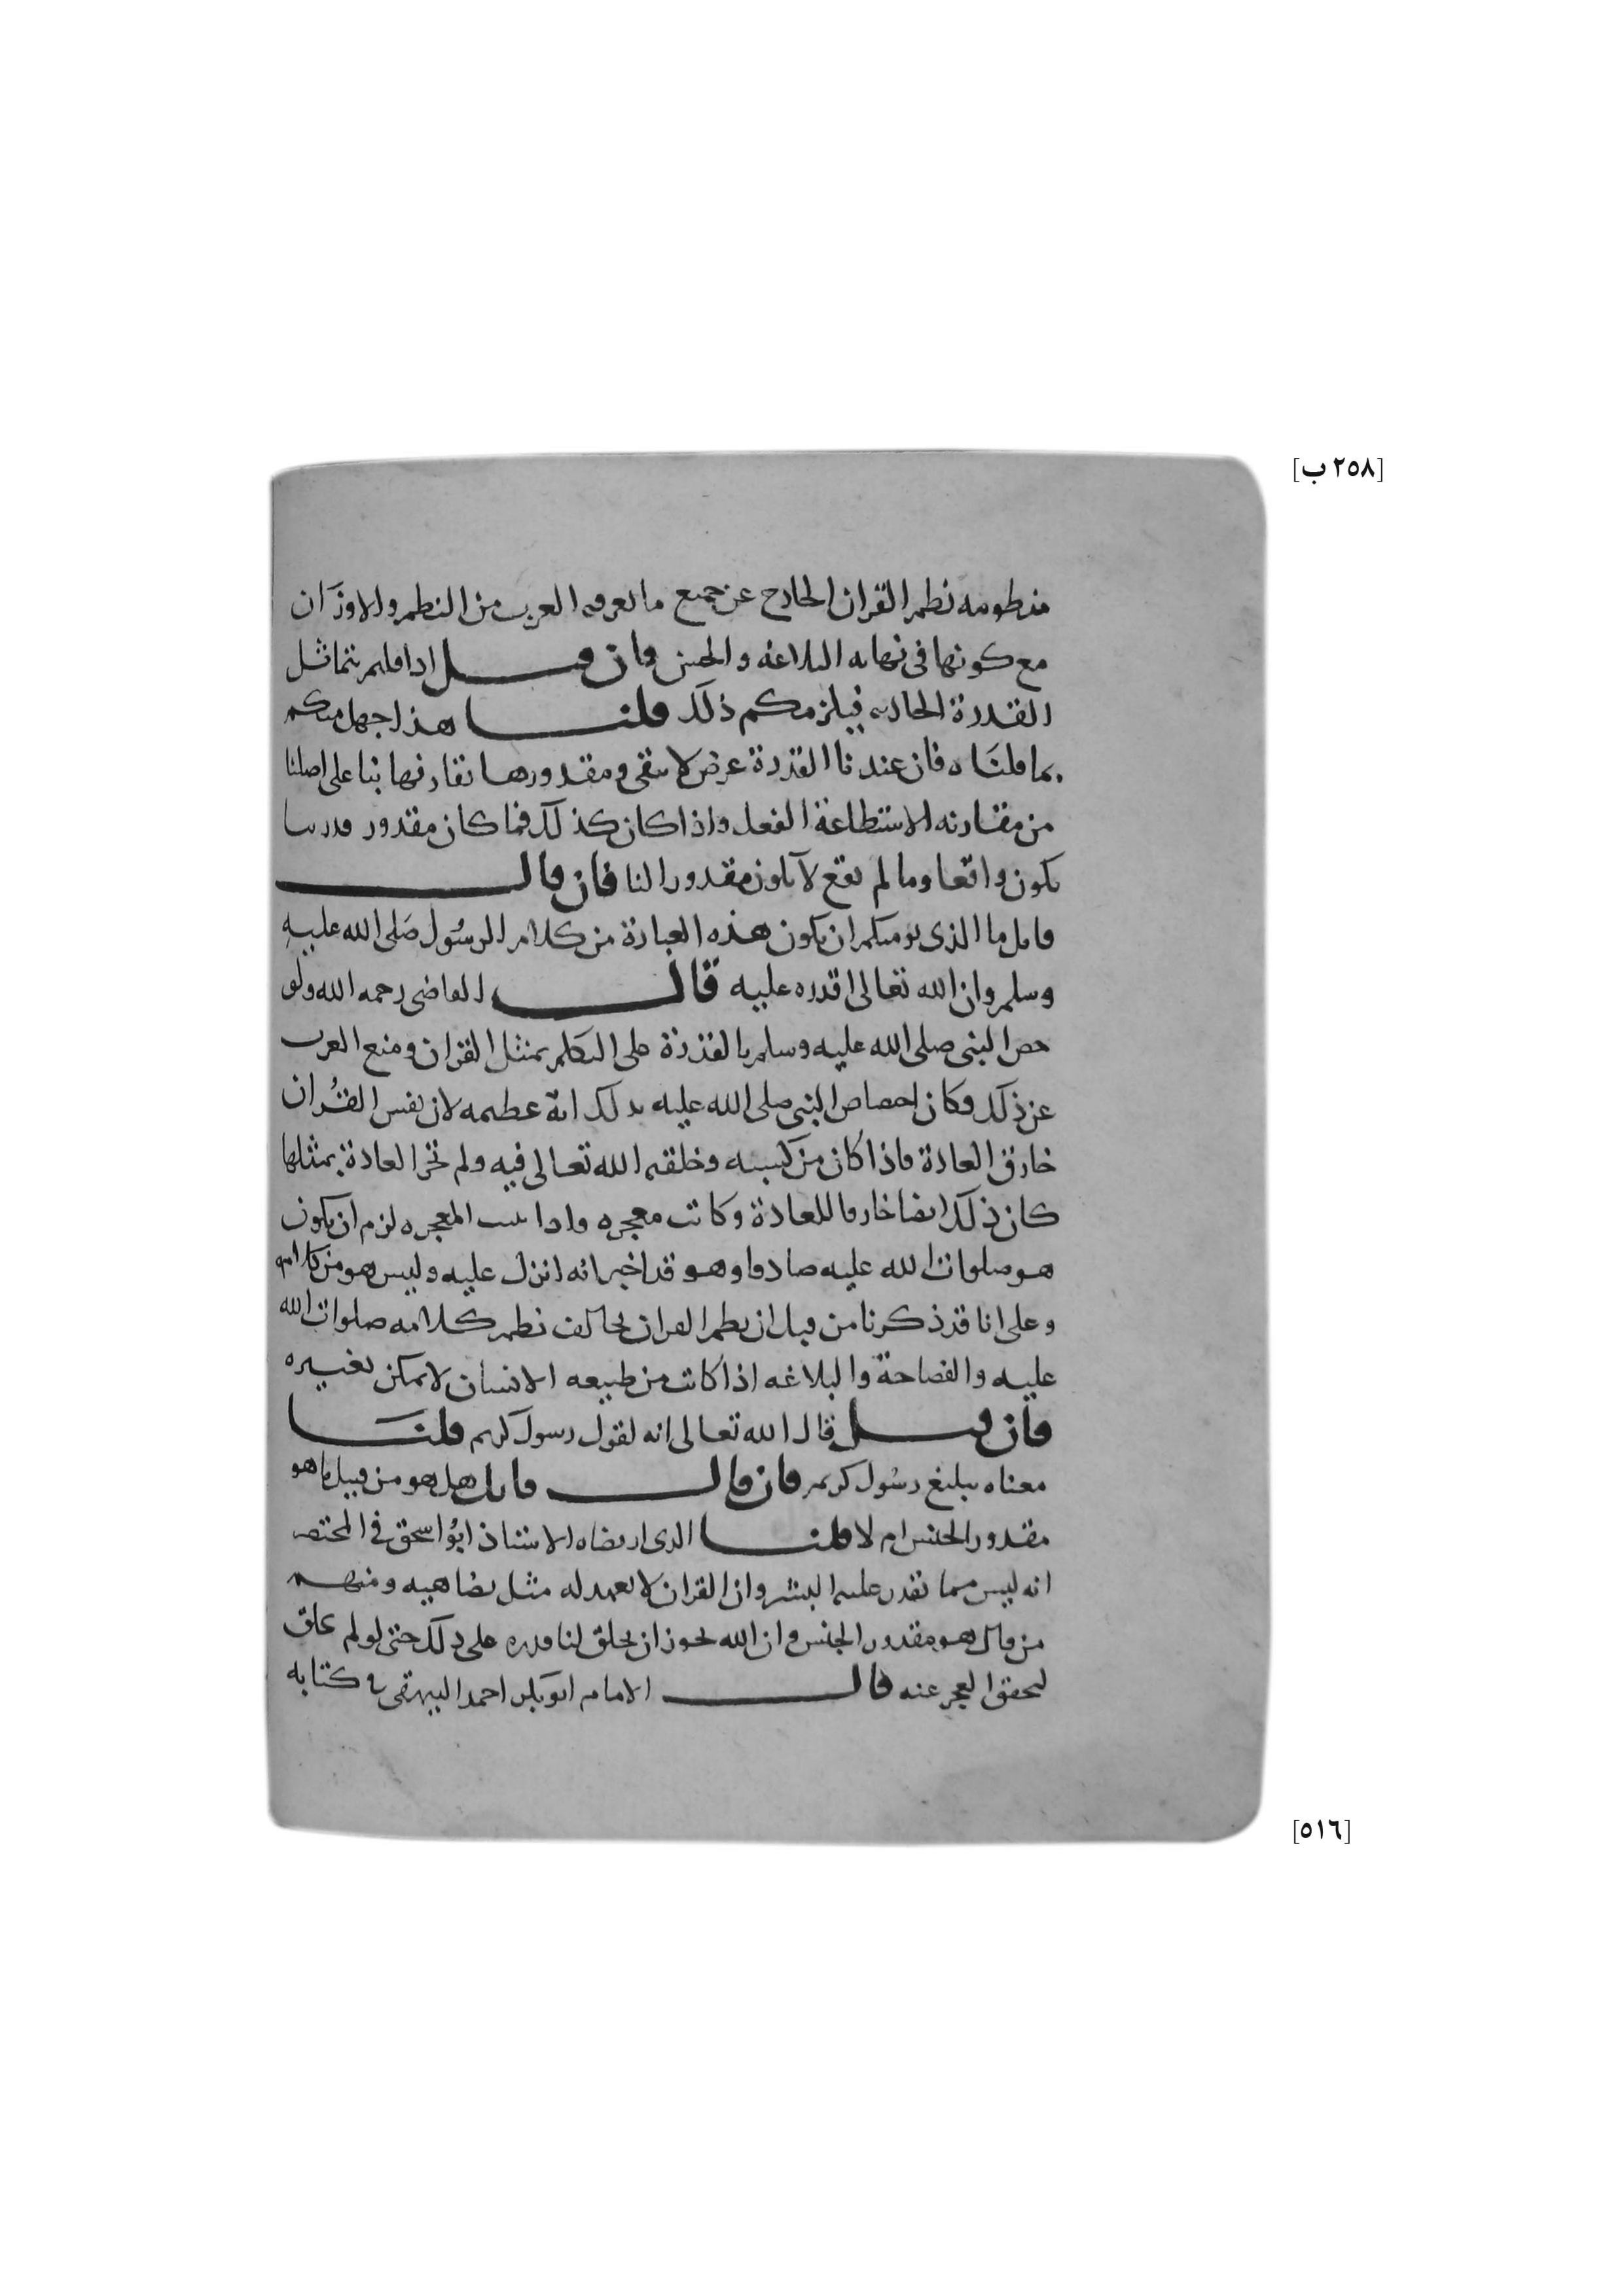 [٢٥٨ ب]
منظومه نظم القران الخارج عن جميع ما تعرفه العرب من النظم والاوزان
مع كونها فى نهايه البلاغه والحسن فان قيل اذا قلتم بتماثل
القدرة الحادثه فيلزمكم ذلك قلنا هذا جهل منكم
بما قلناه فان عندنا القدرة عرض لا تبقى ومقدورها تقارنها بنا على اصلنا
من مقارنه الاستطاعة الفعل واذا كان كذلك فما كان مقدور قدرتنا
يكون واقعا وما لم يقع لا يكون مقدورا لنا فان قال
قايل ما الذى يومنكم ان يكون هذه العبارة من كلام الرسول صلى الله عليه
وسلم وان الله تعالى اقدره عليه قال القاضى رحمه الله ولو
خص النبى صلى الله عليه وسلم بالقدرة على التكلم بمثل القران ومنع العرب
عن ذلك وكان اختصاص النبى صلى الله عليه بذلك اية عظيمه لان نفس القران
خارق العادة فاذا كان من كسبه وخلقه الله تعالى فيه ولم تجر العادة بمثلها
كان ذلك ايضا خارقا للعادة وكانت معجزه واذا ثبتت المعجزه لزم ان يكون
هو صلوات الله عليه صادقا وهو قد اخبر انه انزل عليه وليس هو من كلامه
وعلى انا قد ذكرنا من قبل ان نظم القران يخالف نظم كلامه صلوات الله
عليه والفصاحة والبلاغه اذا كانت من طبيعه الانسان لا يمكن تغييره
فان قيل قال الله تعالى انه لقول رسول كريم قلنا
معناه تبليغ رسول كريم فان قال قايل هل هو من قبيل ما هو
مقدور الجنس ام لا قلنا الذى ارتضاه الاستاذ ابو اسحق فى المختصر
انه ليس مما تقدر عليه البشر وان القران لا يعهد له مثل يضاهيه ومنهم
من قال هو مقدور الجنس وان الله يجوز ان يخلق لنا قدره على ذلك حتى لو لم يخلق
لتحقق العجز عنه قال الامام ابو بكر احمد البيهقى فى كتابه
[٥١٦]